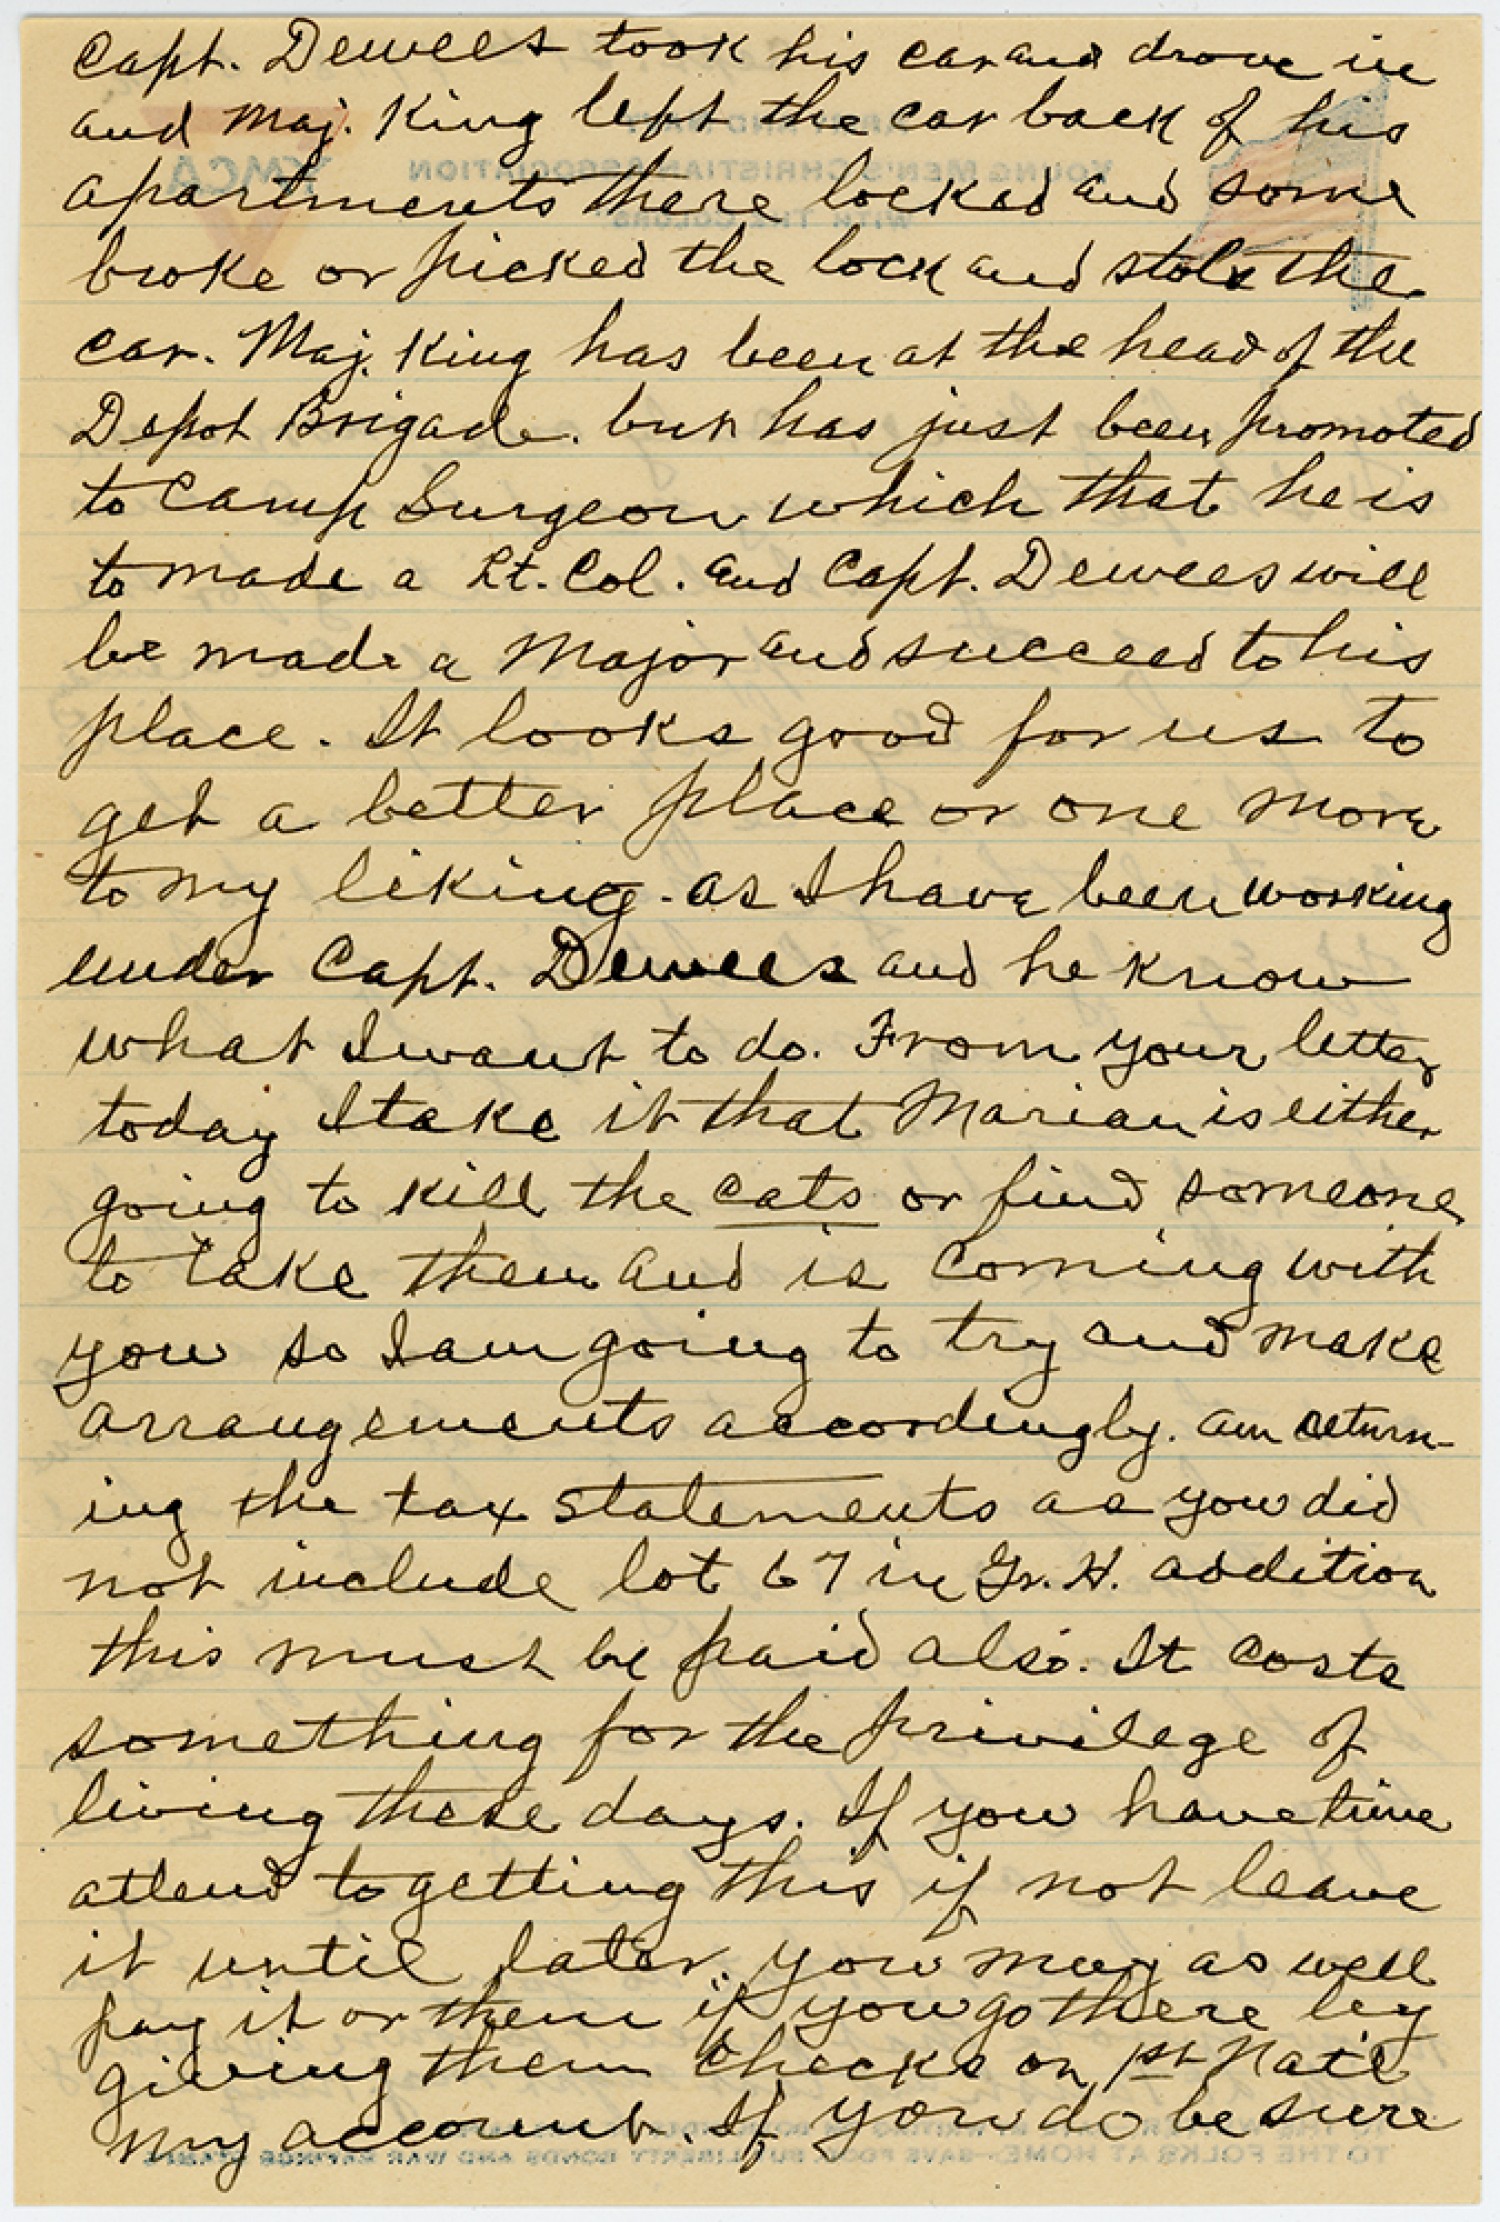 Capt. Dewees took his car and drove in
and Maj. King left the car back of his
apartments there locked and some
broke or picked the lock and stole the
car. Maj. King has been at the head of the
Depot Brigade. but has just been promoted
to Camp Surgeon which that he is
to made a Lt. Col. and Capt. Dewees will
be made a Major and succeed to his
place. It looks good for us to
get a better place or one more
to my liking. as I have been working
under Capt. Dewees and he know
what I want to do. From your letter
today I take it that Marian is either
going to kill the cats or find someone
to take them and is coming with
you so I am going to try and make
arrangements accordingly. am return-
ing the tax statements as you did
not include lot 67 in Gr. H. addition
this must be paid also. It costs
something for the privilege of
living these days. If you have time
attend to getting this if not leave
it until later. you may as well
pay it or them if you go there by
giving them checks on 1st Nat'l
my account. If you do be sure
YMCA
YOUNG MEN'S CHRISTIAN ASSOCIATION
"WITH THE COLORS"
TO THE FOLKS AT HOME—SAVE FOOD, BUY LIBERTY BONDS AND WAR SAVINGS STAMPS